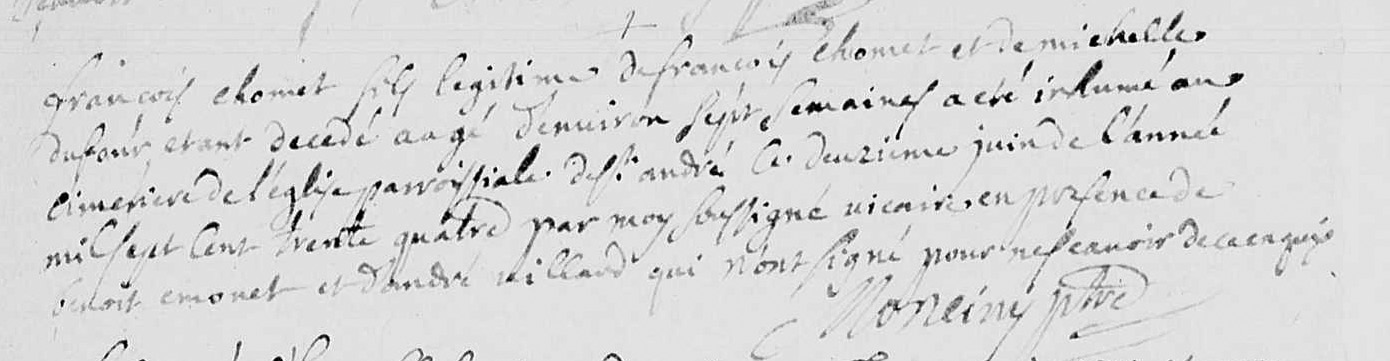 francois chomet fils legitime de francois chomet et de michelle
dufour etant decedé aagé denuiron sept semaines a eté inhumé au
cimetiere de l'eglise parroissiale de st andré le deuzieme juin de l'année
mil sept cent trente quatre par moy soussigné uicaire en presence de
benoit emonet et d'andré uillard qui n'ont signé pour ne scauoir de ce enquis
ptre